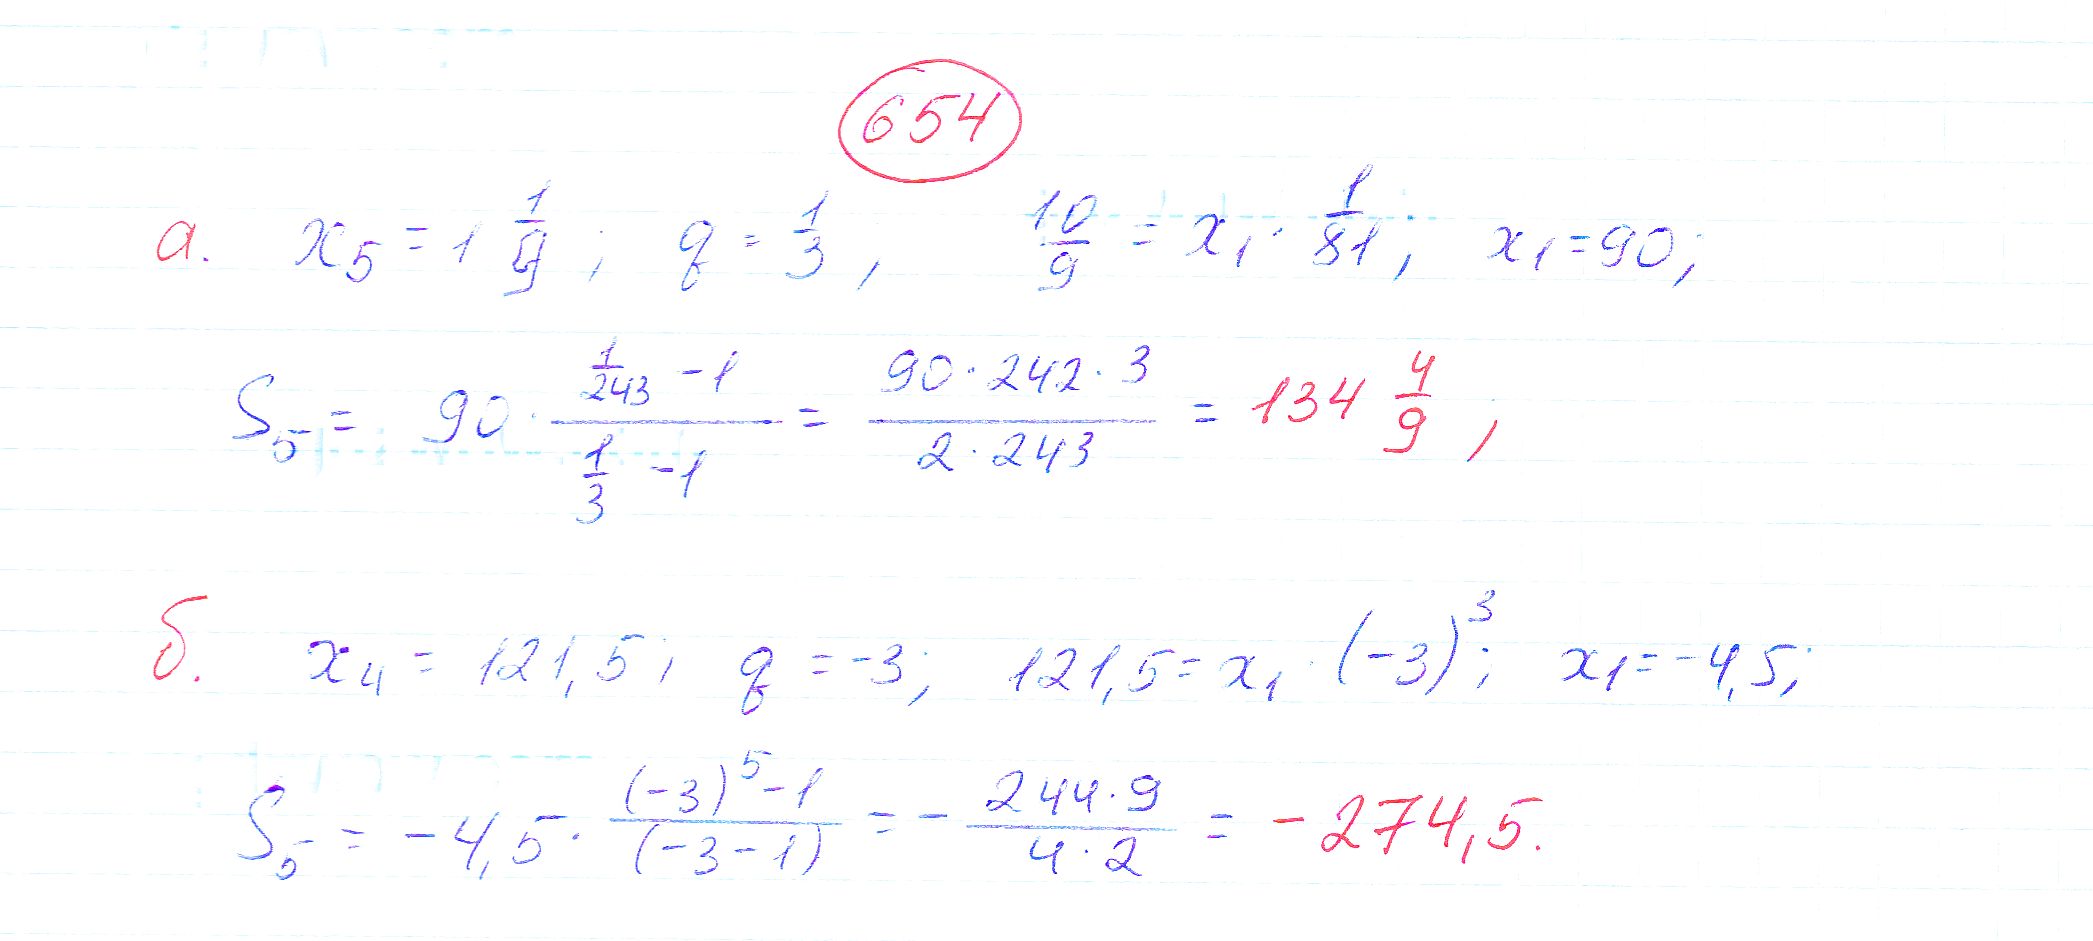 654
а. x₅ = 1 1/9 ; q = 1/3 ; 10/9 = x₁ · 1/81 ; x₁ = 90;
S₅ = 90 · (1/243 - 1)/(1/3 - 1) = (90 · 242 · 3)/(2 · 243) = 134 4/9 ,
б. x₄ = 121,5; q = -3; 121,5 = x₁ · (-3)³; x₁ = -4,5;
S₅ = -4,5 · ((-3)⁵ - 1)/((-3 - 1)) = - (244 · 9)/(4 · 2) = -274,5.